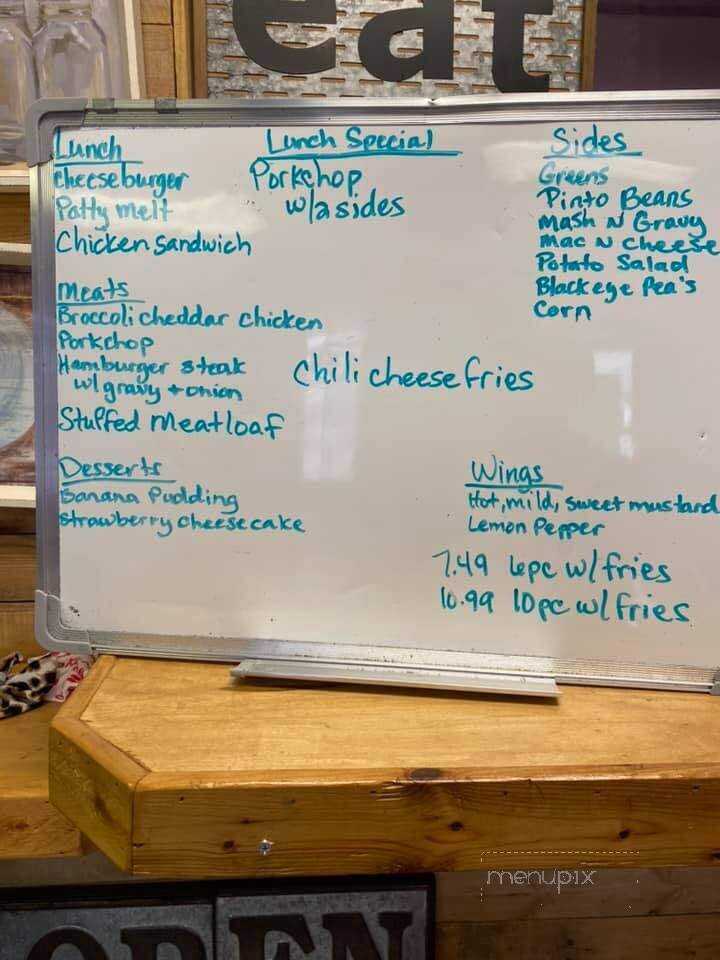 eat
Lunch
Cheeseburger
Patty melt
Chicken Sandwich
Lunch Special
Porkchop
w/2 sides
Sides
Greens
Pinto Beans
Mash N Gravy
Mac N Cheese
Potato Salad
Blackeye Pea's
Corn
Meats
Broccoli cheddar chicken
Porkchop
Hamburger steak
w/gravy + onion
Stuffed Meatloaf
Chili cheese fries
Desserts
Banana Pudding
Strawberry Cheesecake
Wings
Hot, mild, sweet mustard
Lemon Pepper
7.49 6pc w/fries
10.99 10pc w/fries
menupix
OPEN